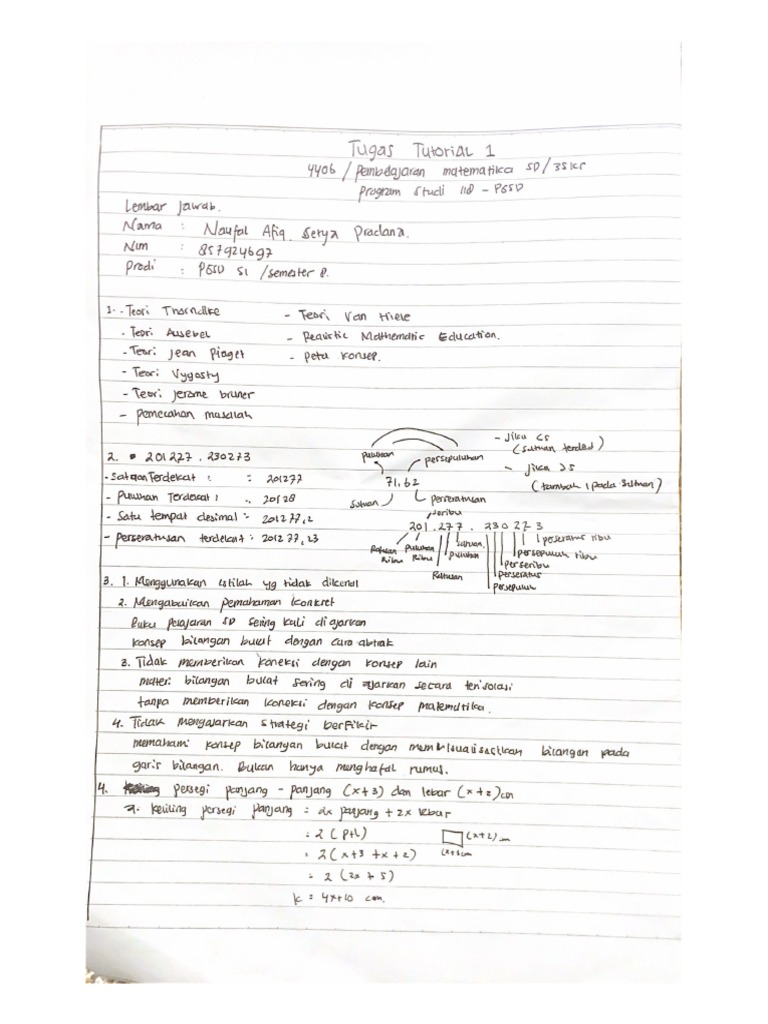 Tugas Tutorial 1
4406 / Pembelajaran matematika SD / 3SKS
Program Studi 118 - PGSD
Lembar Jawab.
Nama : Naufal Afiq Setya Pradana.
Nim : 857924697
Prodi : PGSD S1 / semester 8.
1. - Teori Thorndike - Teori Van Hiele
- Teori Ausebel - Realistic Mathematic Education.
- Teori Jean Piaget - Peta Konsep.
- Teori Vygosty
- Teori Jerome bruner
- Pemecahan masalah
2. • 201277.230273
- Satuan Terdekat : : 201277
- Puluhan Terdekat : : 20128
- Satu tempat desimal : - 201277,2
- Perseratusan terdekat : 201277,23
puluhan persepuluhan
71,62
Satuan Perseratusan
- Jika <5
(satuan terdekat)
- Jika ≥5
(tambah 1 pada satuan)
seribu
201.277.230273
Ratusan Ribu Puluhan Ribu
Ratusan puluhan satuan
perseratus ribu
persepuluh ribu
perseribu
perseratus
persepuluh
3. 1. Menggunakan istilah yg tidak dikenal
2. Mengabaikan pemahaman konkret
Buku pelajaran SD sering kali diajarkan
konsep bilangan bulat dengan cara abtrak
3. Tidak memberikan koneksi dengan konsep lain
materi bilangan bulat sering di ajarkan secara terisolasi
tanpa memberikan koneksi dengan konsep matematika.
4. Tidak mengajarkan strategi berfikir
memahami konsep bilangan bulat dengan membisualisasikan bilangan pada
garis bilangan. Bukan hanya menghafal rumus.
4. persegi panjang - panjang (x+3) dan lebar (x+2)cm
a. keliling persegi panjang = 2x panjang + 2x lebar
= 2 (p+l)
= 2 (x+3 +x+2)
= 2 (2x + 5)
k = 4x+10 cm.
(x+2) cm
(x+3)cm